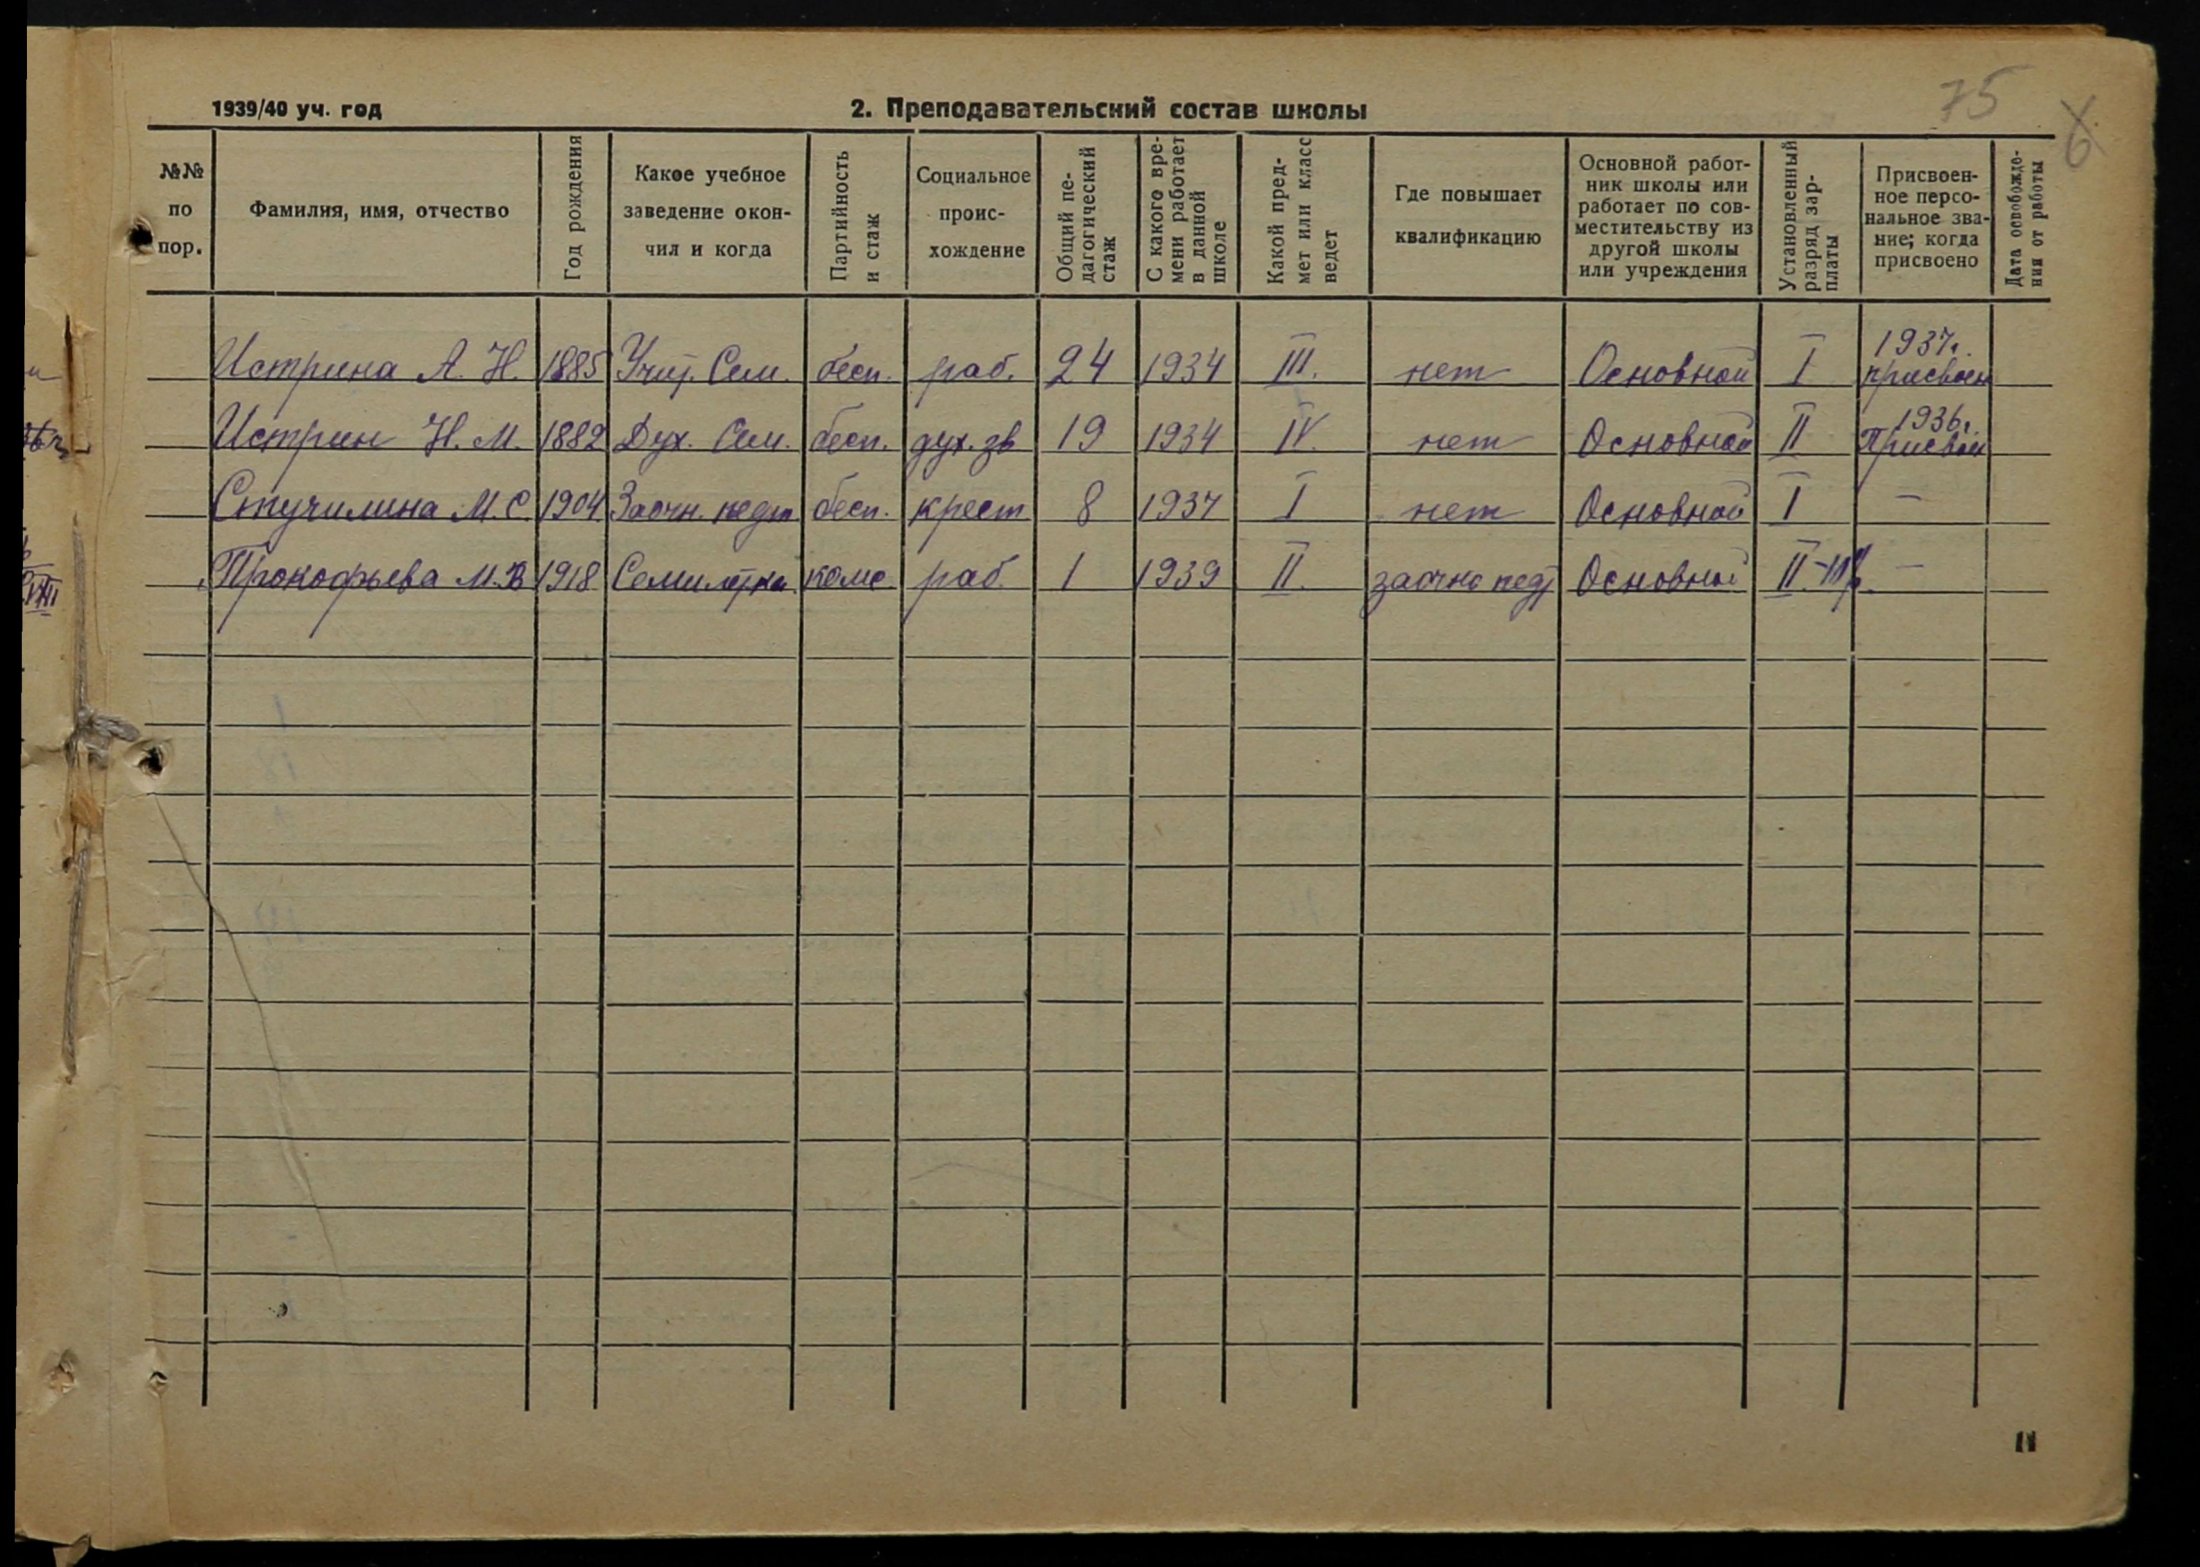 75
6
1939/40 уч. год
2. Преподавательский состав школы
№№ по пор.
Фамилия, имя, отчество
Год рождения
Какое учебное заведение окончил и когда
Партийность и стаж
Социальное происхождение
Общий педагогический стаж
С какого времени работает в данной школе
Какой предмет или класс ведет
Где повышает квалификацию
Основной работник школы или работает по совместительству из другой школы или учреждения
Установленный разряд зарплаты
Присвоенное персональное звание; когда присвоено
Дата освобождения от работы
Истрина А. Н. 1885 Учит. Сем. бесп. раб. 24 1934 III. нет Основной I 1937г. присвоен
Истрин Н. М. 1882 Дух. Сем. бесп. дух. зв 19 1934 IV. нет Основной II 1936г. Присвоен
Стучилина М. С. 1904 Заочн. педт бесп. крест 8 1937 I нет Основной I —
Прокофьева М. В 1918 Семилетка комс раб. 1 1939 II. заочно педт Основной II —
11